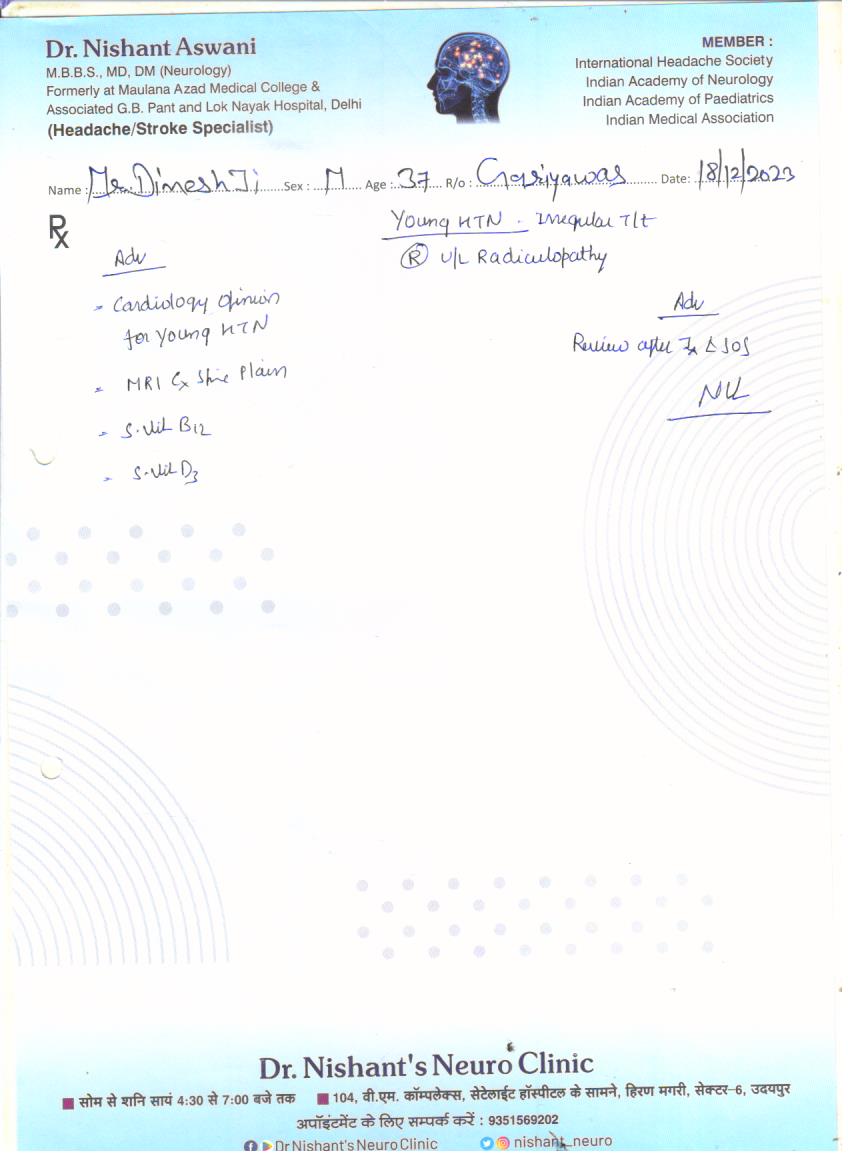 Dr. Nishant Aswani
M.B.B.S., MD, DM (Neurology)
Formerly at Maulana Azad Medical College &
Associated G.B. Pant and Lok Nayak Hospital, Delhi
(Headache/Stroke Specialist)
MEMBER :
International Headache Society
Indian Academy of Neurology
Indian Academy of Paediatrics
Indian Medical Association
Name : Mr. Dinesh Ji Sex : M Age : 37 R/o : Gariyawas Date: 18/12/2023
Rx
Young HTN - Irregular T/t
(R) U/L Radiculopathy
Adv
- Cardiology Opinion
for Young HTN
- MRI Cx Spine Plain
- S. Vit B12
- S. Vit D3
Adv
Review after & SOS
Dr. Nishant's Neuro Clinic
सोम से शनि सायं 4:30 से 7:00 बजे तक
104, वी.एम. कॉम्पलेक्स, सेटेलाईट हॉस्पीटल के सामने, हिरण मगरी, सेक्टर-6, उदयपुर
अपॉइंटमेंट के लिए सम्पर्क करें : 9351569202
Dr Nishant's Neuro Clinic
nishant_neuro